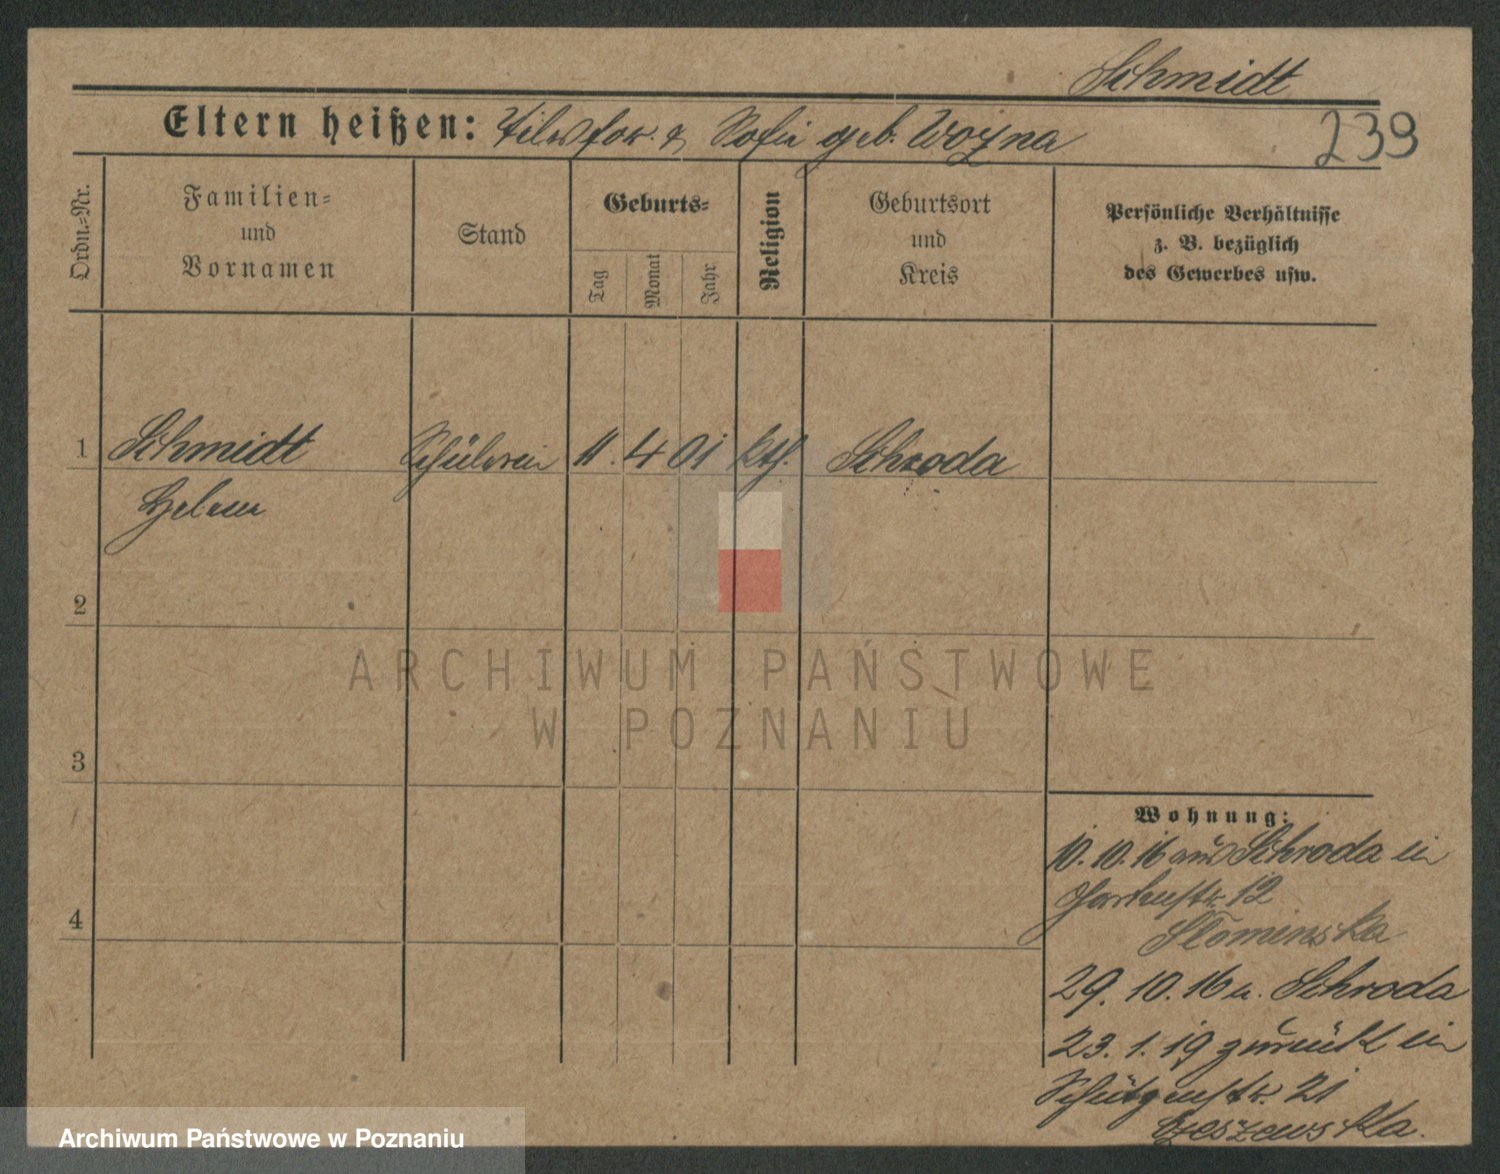 Schmidt
239
Eltern heißen: & Sofie geb. Wozna
Ordn.=Nr.
Familien=
und
Vornamen
Stand
Geburts=
Tag
Monat
Jahr
Religion
Geburtsort
und
Kreis
Persönliche Verhältnisse
z. B. bezüglich
des Gewerbes usw.
1 Schmidt Schülerin 11. 4 01 kth. Schroda
Helene
2
3
4
Wohnung:
10. 10. 16 aus Schroda in
Gartenstr. 12
Slominska
29. 10. 16 n. Schroda
23. 1. 19 zurück in
Schützenstr. 21
Czeszewska.
ARCHIWUM PAŃSTWOWE
W POZNANIU
Archiwum Państwowe w Poznaniu